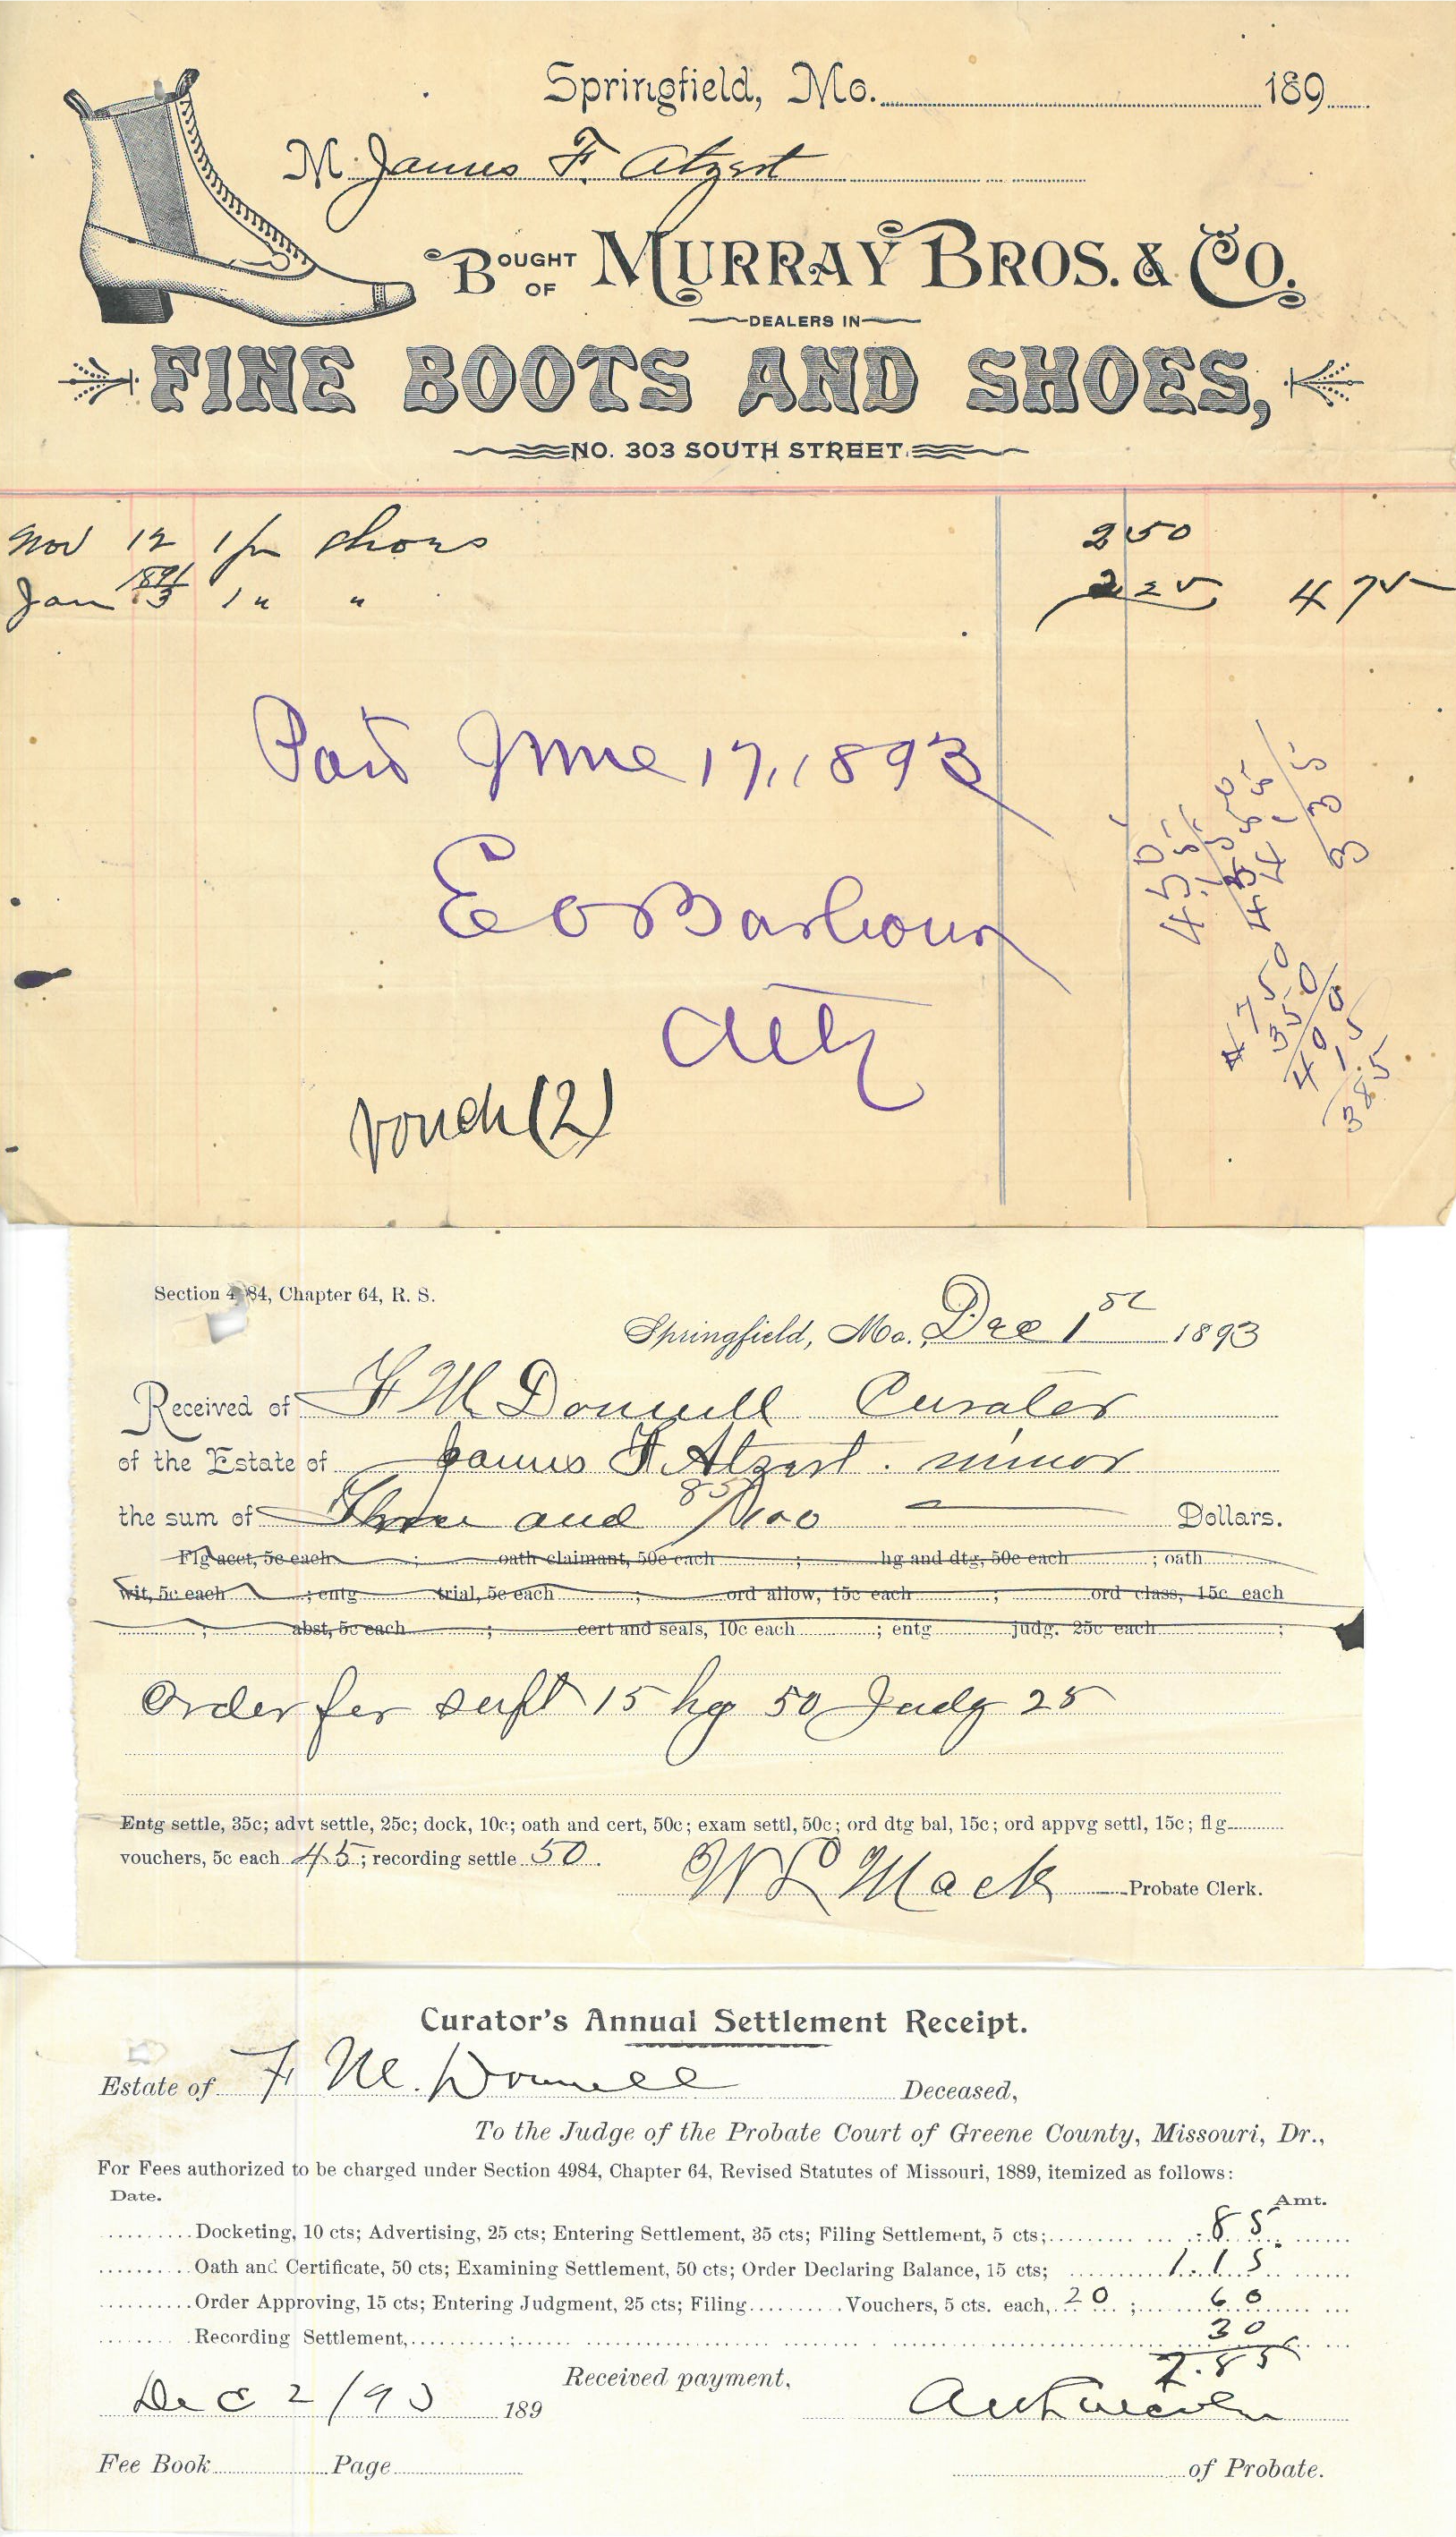 Springfield, Mo. 189
M James F. Atzert
BOUGHT OF MURRAY BROS. & CO.
DEALERS IN
FINE BOOTS AND SHOES,
NO. 303 SOUTH STREET.
Nov 12 1 pr Shoes 2 50
1891
Jan 3 1 " " 2 25 4 75
Paid June 17, 1893
E O Barbour
Atty
Vouch (2)
4 7 50
3 50
4 00
15
3 85
3 35
Section 4984, Chapter 64, R. S.
Springfield, Mo., Dec 1st 1893
Received of F M Donnell Curator
of the Estate of James F. Atzert. minor
the sum of Three and 85/100 Dollars.
Flg acct, 5c each ; oath claimant, 50c each ; hg and dtg, 50c each ; oath
wit, 5c each ; entg trial, 5c each ; ord allow, 15c each ; ord class, 15c each
; abst, 5c each ; cert and seals, 10c each ; entg judg. 25c each ;
Order for supt 15 hg 50 Judg 25
Entg settle, 35c; advt settle, 25c; dock, 10c; oath and cert, 50c; exam settl, 50c; ord dtg bal, 15c; ord appvg settl, 15c; flg
vouchers, 5c each 45; recording settle 50.
W L Mack Probate Clerk.
Curator's Annual Settlement Receipt.
Estate of F M. Donnell Deceased,
To the Judge of the Probate Court of Greene County, Missouri, Dr.,
For Fees authorized to be charged under Section 4984, Chapter 64, Revised Statutes of Missouri, 1889, itemized as follows:
Date. Amt.
Docketing, 10 cts; Advertising, 25 cts; Entering Settlement, 35 cts; Filing Settlement, 5 cts; .85
Oath and Certificate, 50 cts; Examining Settlement, 50 cts; Order Declaring Balance, 15 cts; 1.15
Order Approving, 15 cts; Entering Judgment, 25 cts; Filing Vouchers, 5 cts. each, 20 ; 60
Recording Settlement, ; 30
2.85
Received payment,
Dec 2/93 189
Fee Book Page of Probate.